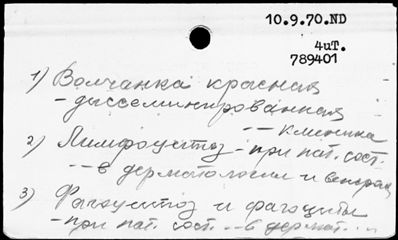 10.9.70.ND
4uT.
789401
1) Волчанка красная
- диссеминированная
-- клиника
2) Лимфоцитоз - при пат. сост.
-- в дерматологии и венерол
3) Фагоцитоз и фагоциты
- при пат. сост. -- в дермат...